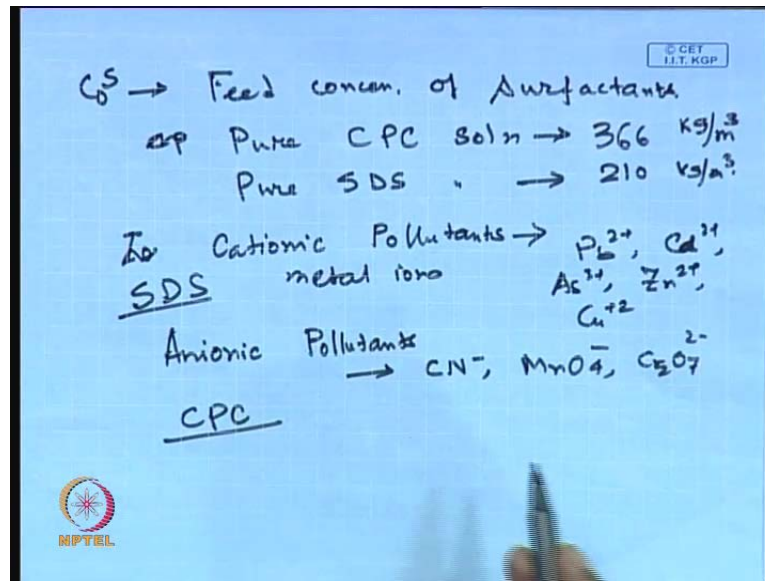 © CET
I.I.T. KGP
C₀ˢ → Feed concn. of Surfactants
Pure CPC soln → 366 kg/m³
Pure SDS " → 210 kg/m³.
Cationic Pollutants → Pb²⁺, Cd²⁺,
SDS metal ions As³⁺, Zn²⁺,
Cu⁺²
Anionic Pollutants
→ CN⁻, MnO₄⁻, Cr₂O₇²⁻
CPC
NPTEL